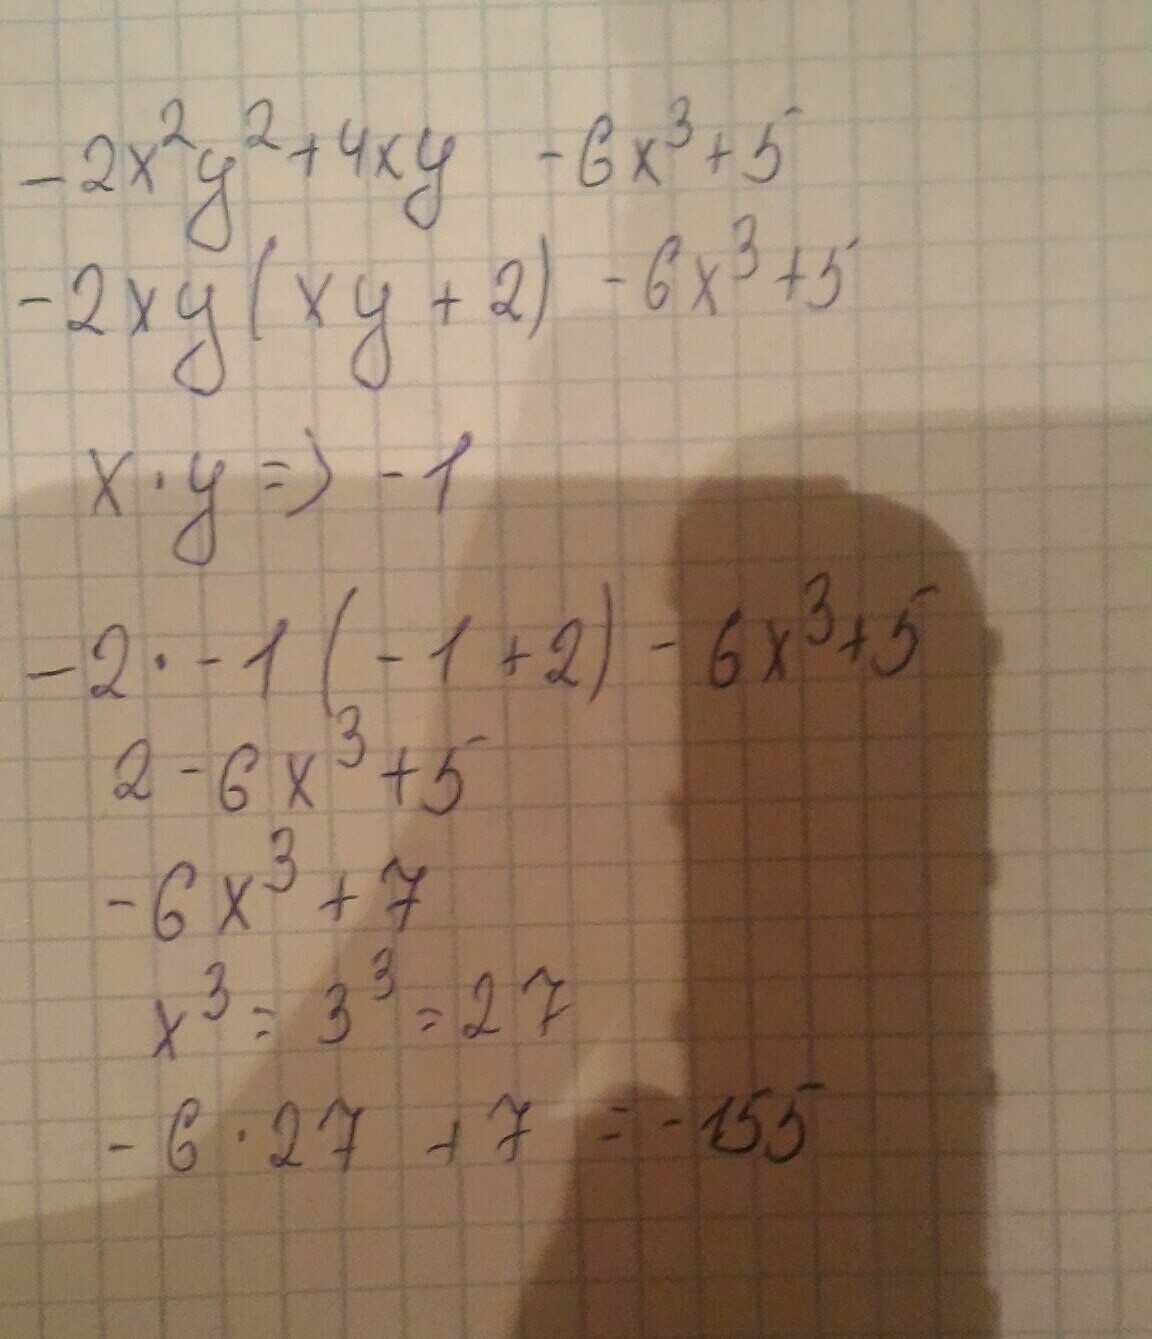 -2x²y²+4xy -6x³+5
-2xy(xy+2) -6x³+5
x·y=> -1
-2·-1(-1+2)-6x³+5
2-6x³+5
-6x³+7
x³=3³=27
-6·27+7=-155